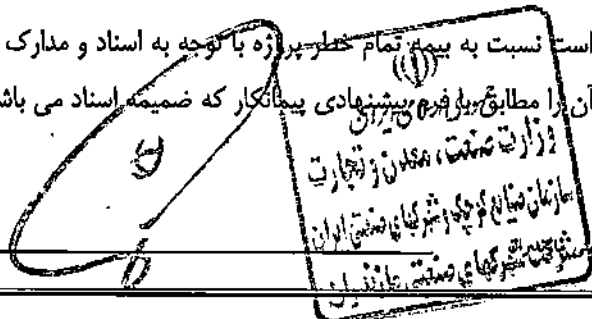 است نسبت به بیمه تمام خطر پروژه با توجه به اسناد و مدارک
آن را مطابق با فرم پیشنهادی پیمانکار که ضمیمه اسناد می باش
جمهوری اسلامی ایران
وزارت صنعت، معدن و تجارت
سازمان صنایع کوچک و شهرکهای صنعتی ایران
شرکت شهرکهای صنعتی مازندران